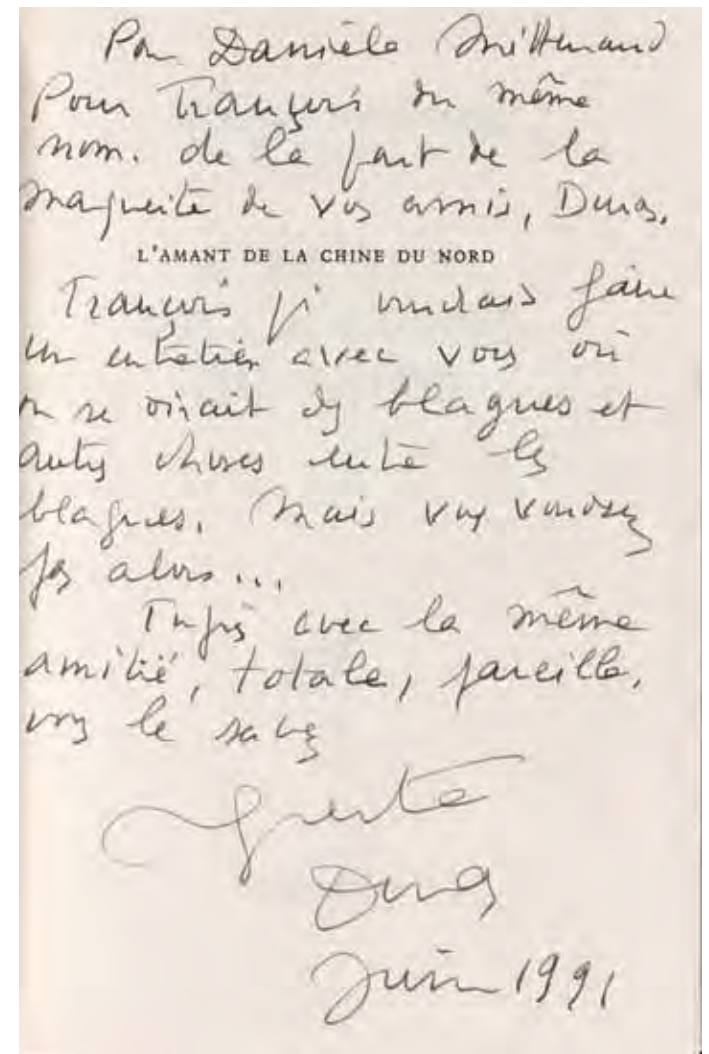 Pour Danièle Mitterrand
Pour François du même
nom. de la part de la
marguerite de vos amis, Duras.
L'AMANT DE LA CHINE DU NORD
François je voudrais faire
un entretien avec vous où
on se dirait des blagues et
autres choses entre les
blagues. Mais vous voudrez
pas alors...
avec la même
amitié, totale, pareille,
vous le savez
Duras
Juin 1991